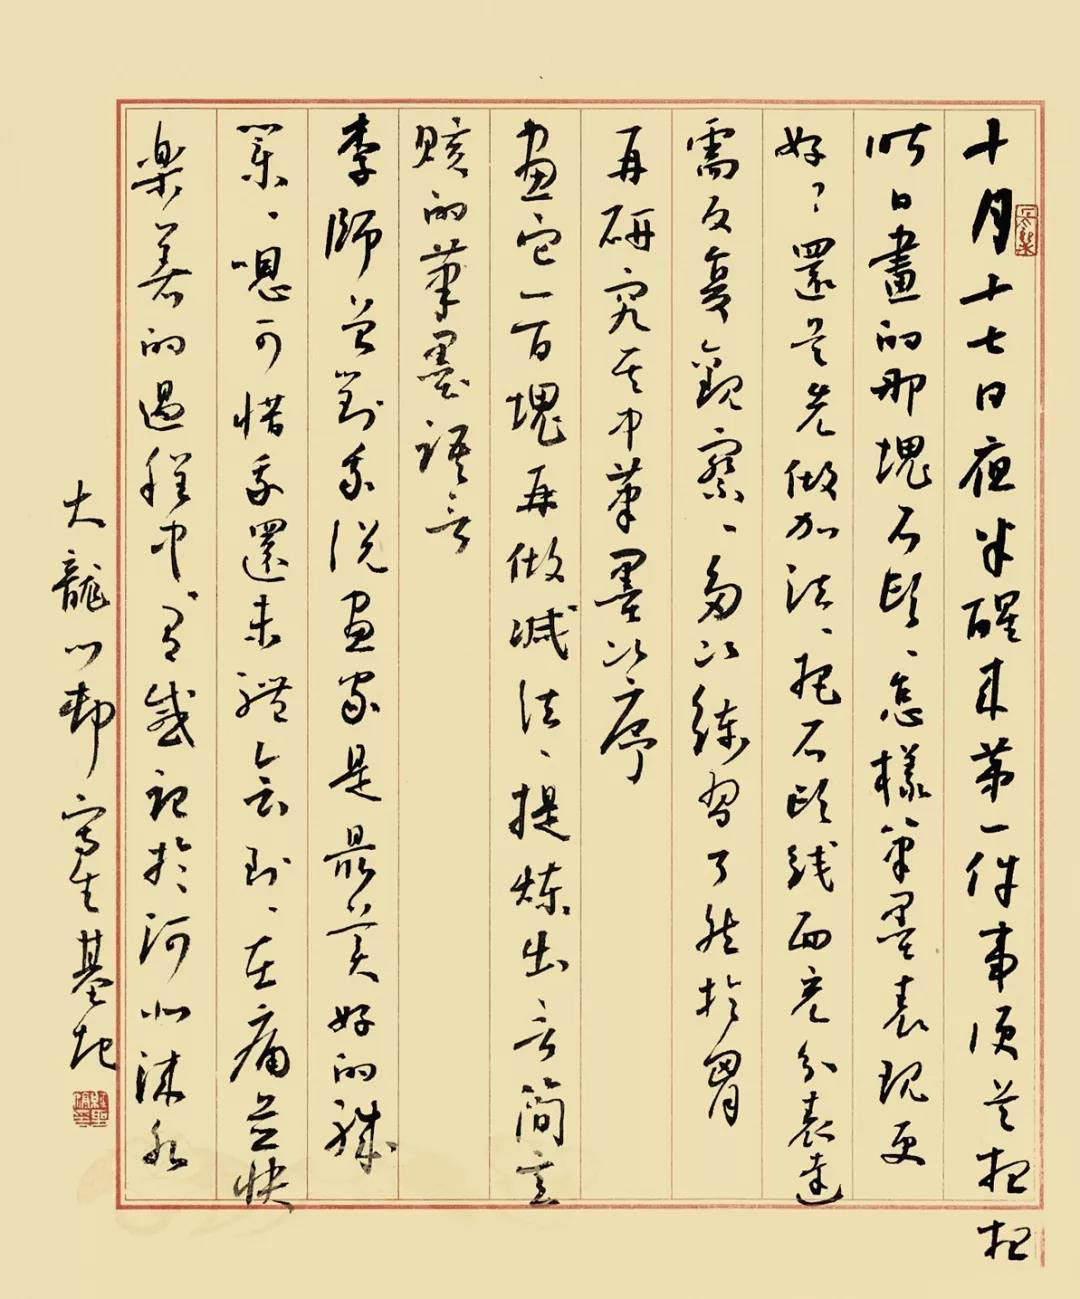 十月十七日夜半醒来第一件事便是想想
昨日畫的那塊石头、怎樣筆墨表现更
好、還是先做加法、把石头线面充分表達
需反复觀察、多次練習了然於胃
再研究其中筆墨次序
畫它一百塊再做减法、提炼出言简意
赅的筆墨语言
李師曾對我说畫家是最美好的職
業、嗯可惜我還未體会到、在痛並快
樂着的過程中 有感記於河北涞水
大龍门村寫生基地